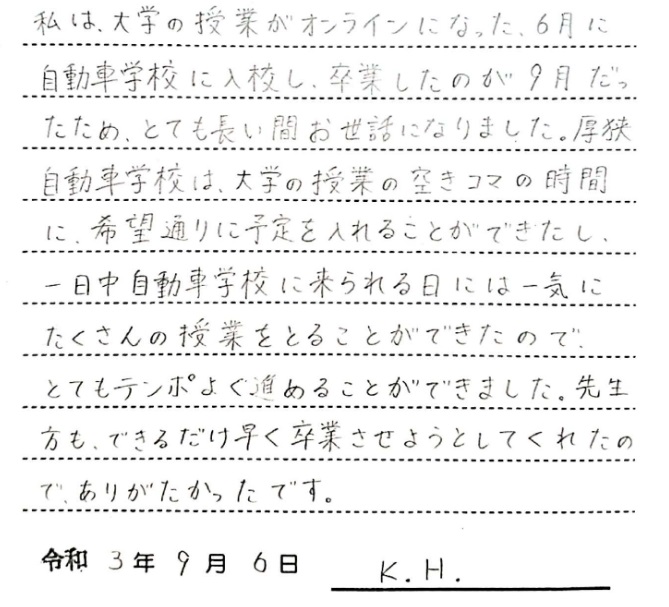 私は、大学の授業がオンラインになった、6月に
自動車学校に入校し、卒業したのが9月だっ
たため、とても長い間お世話になりました。厚狭
自動車学校は、大学の授業の空きコマの時間
に、希望通りに予定を入れることができたし、
一日中自動車学校に来られる日には一気に
たくさんの授業をとることができたので、
とてもテンポよく進めることができました。先生
方も、できるだけ早く卒業させようとしてくれたの
で、ありがたかったです。
令和 3年 9月 6日 K.H.